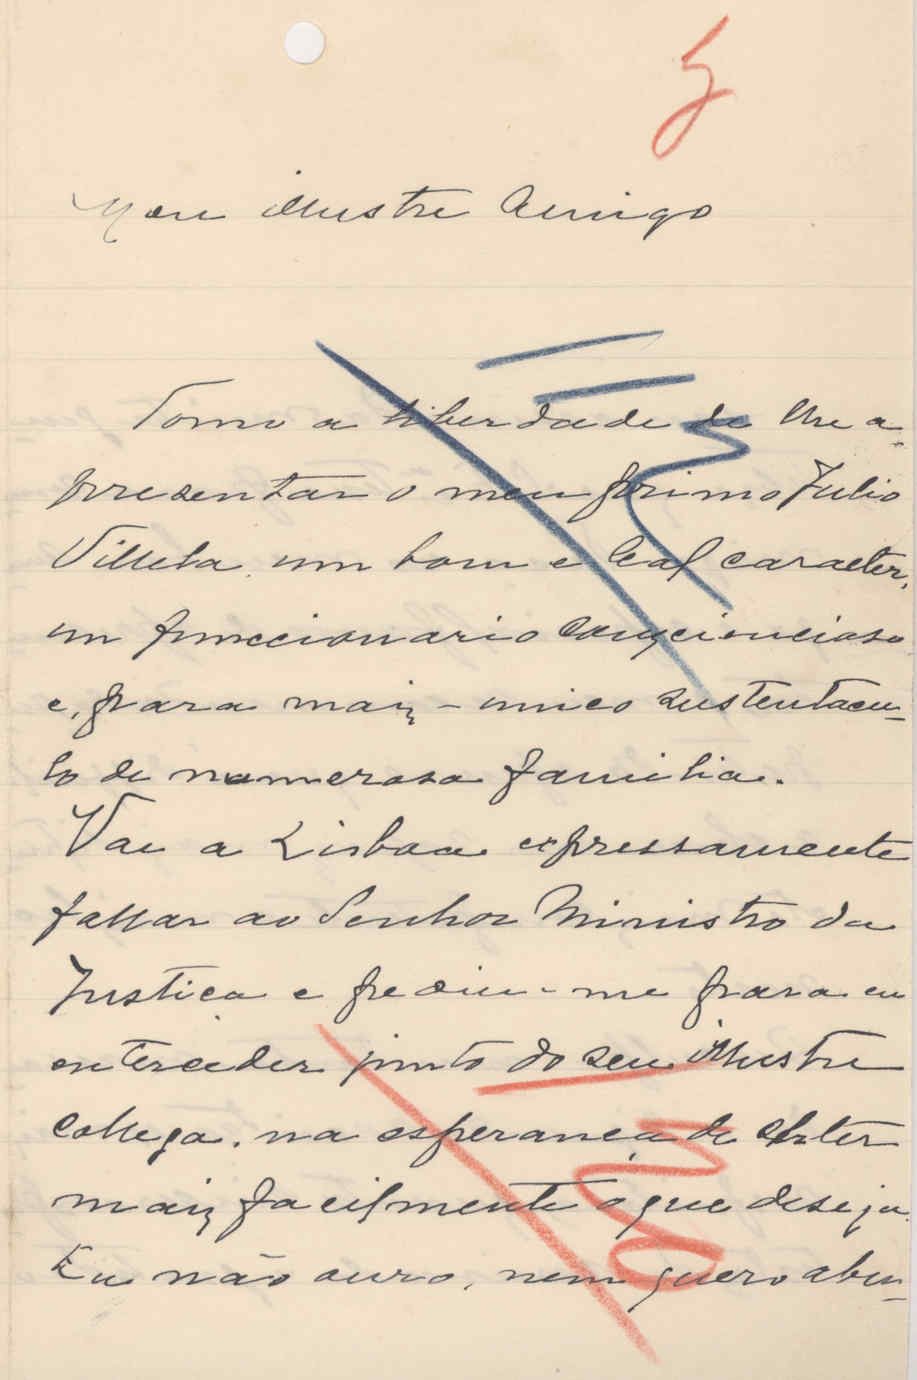 5
Meu illustre Amigo
Tomo a liberdade de lhe a-
presentar o meu primo Julio
Villela, um bom e leal caracter,
um funccionario consciencioso
e, para mais – unico sustentacu-
lo de numerosa familia.
Vae a Lisboa expressamente
fallar ao Senhor Ministro da
Justiça e pediu-me para eu
enterceder junto do seu illustre
collega, na esperança de obter
mais facilmente o que deseja.
Eu não ouso, nem quero abu-